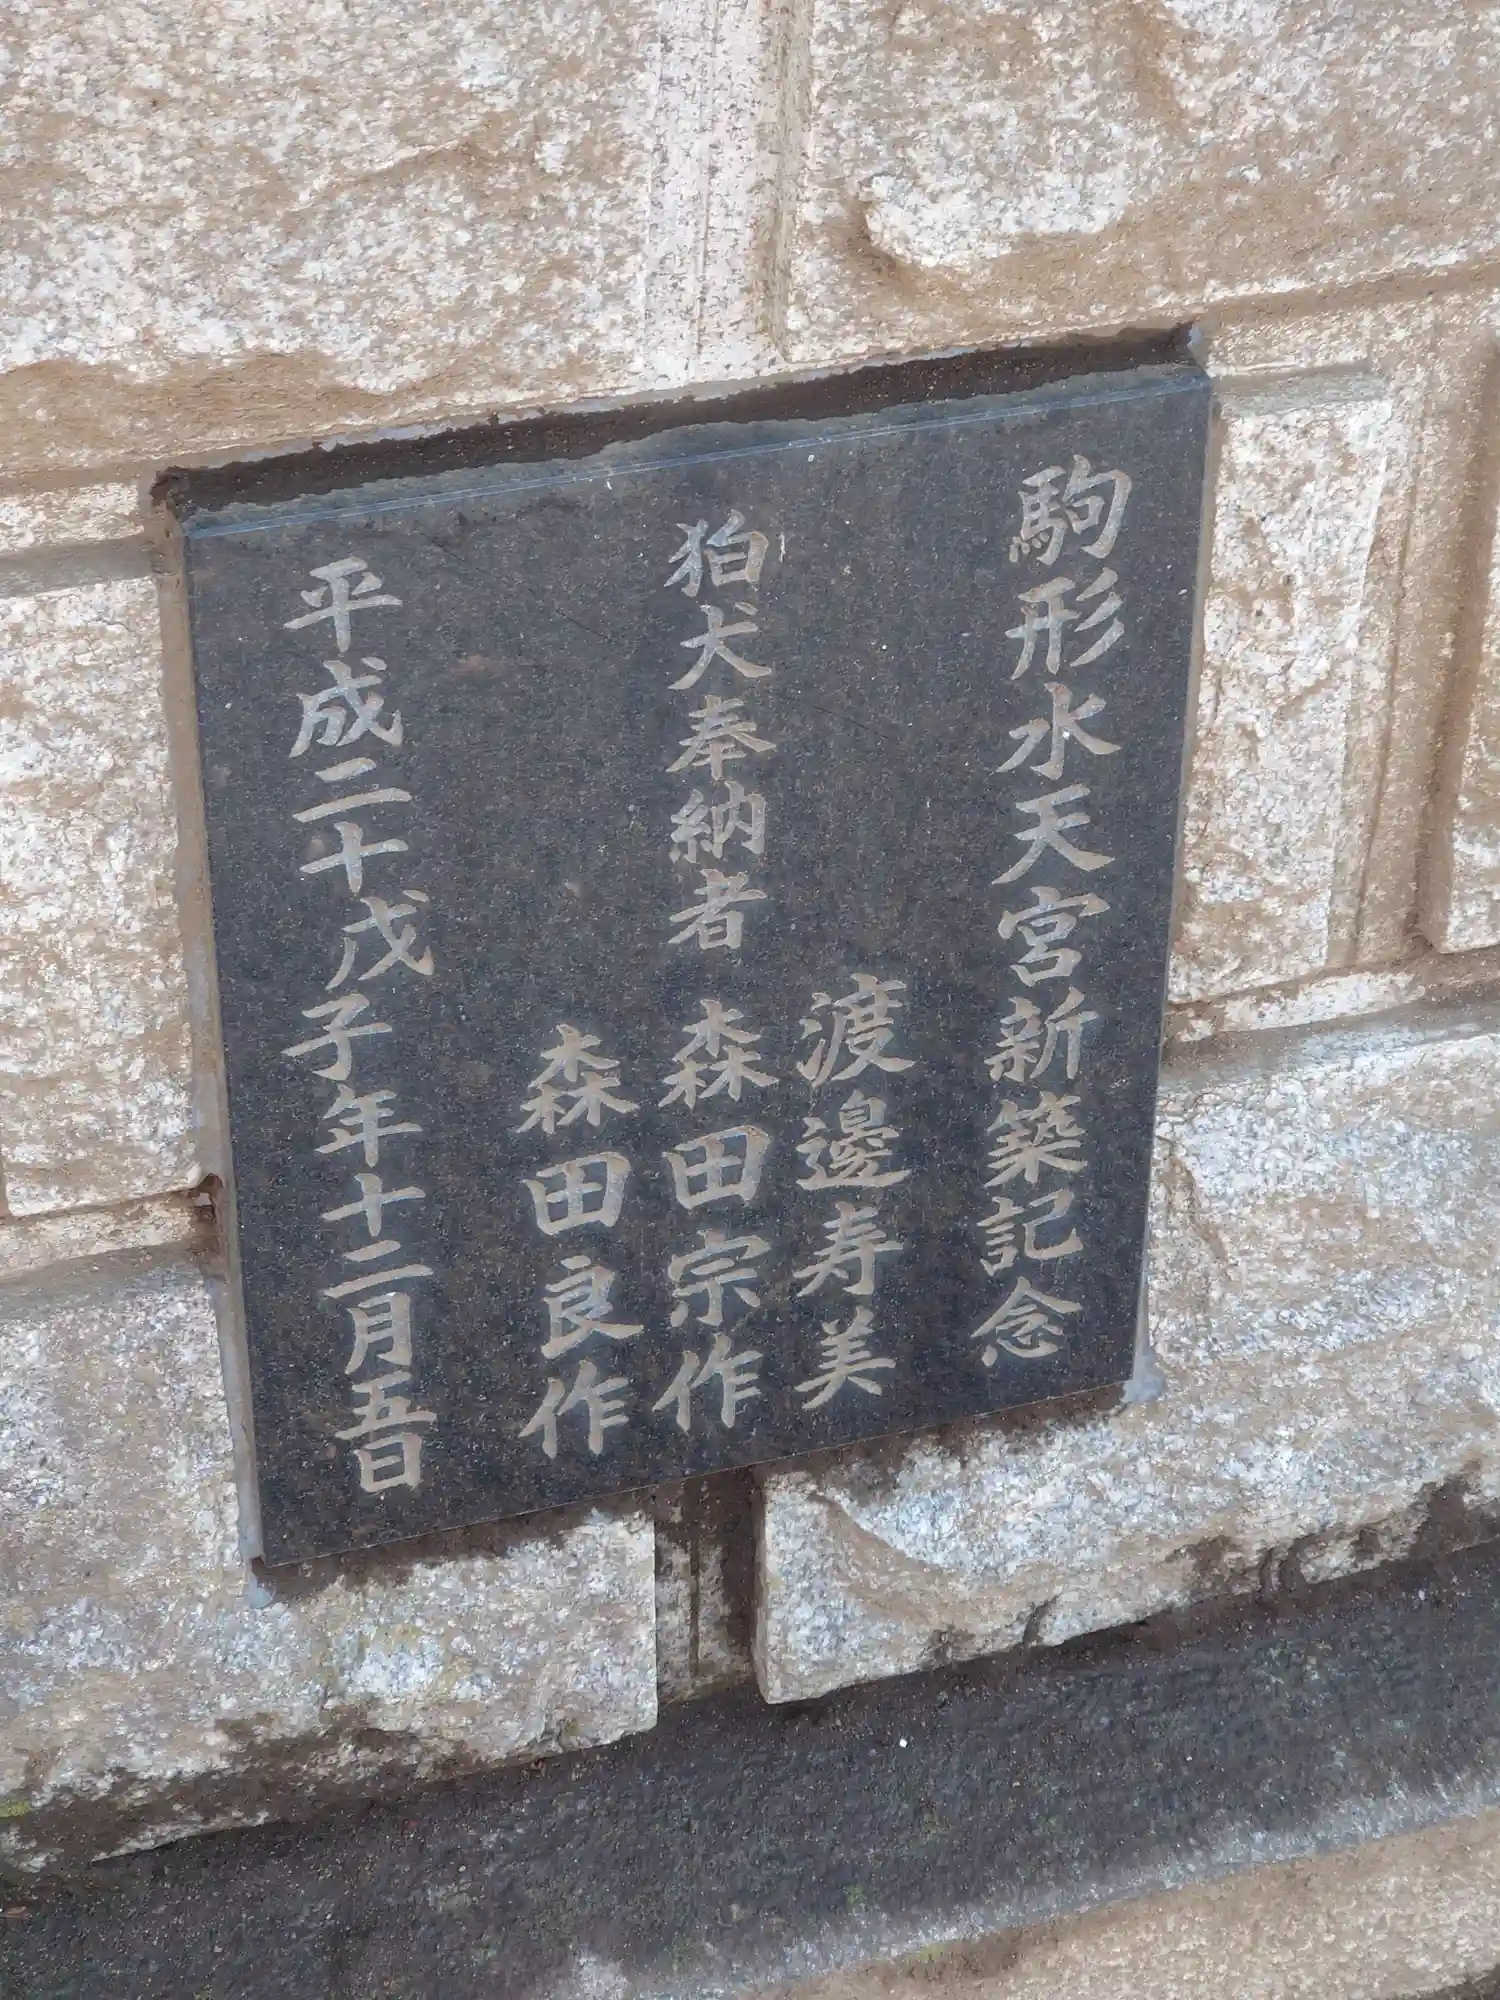 駒形水天宮新築記念
渡邊寿美
狛犬奉納者 森田宗作
森田良作
平成二十戊子年十二月吾日